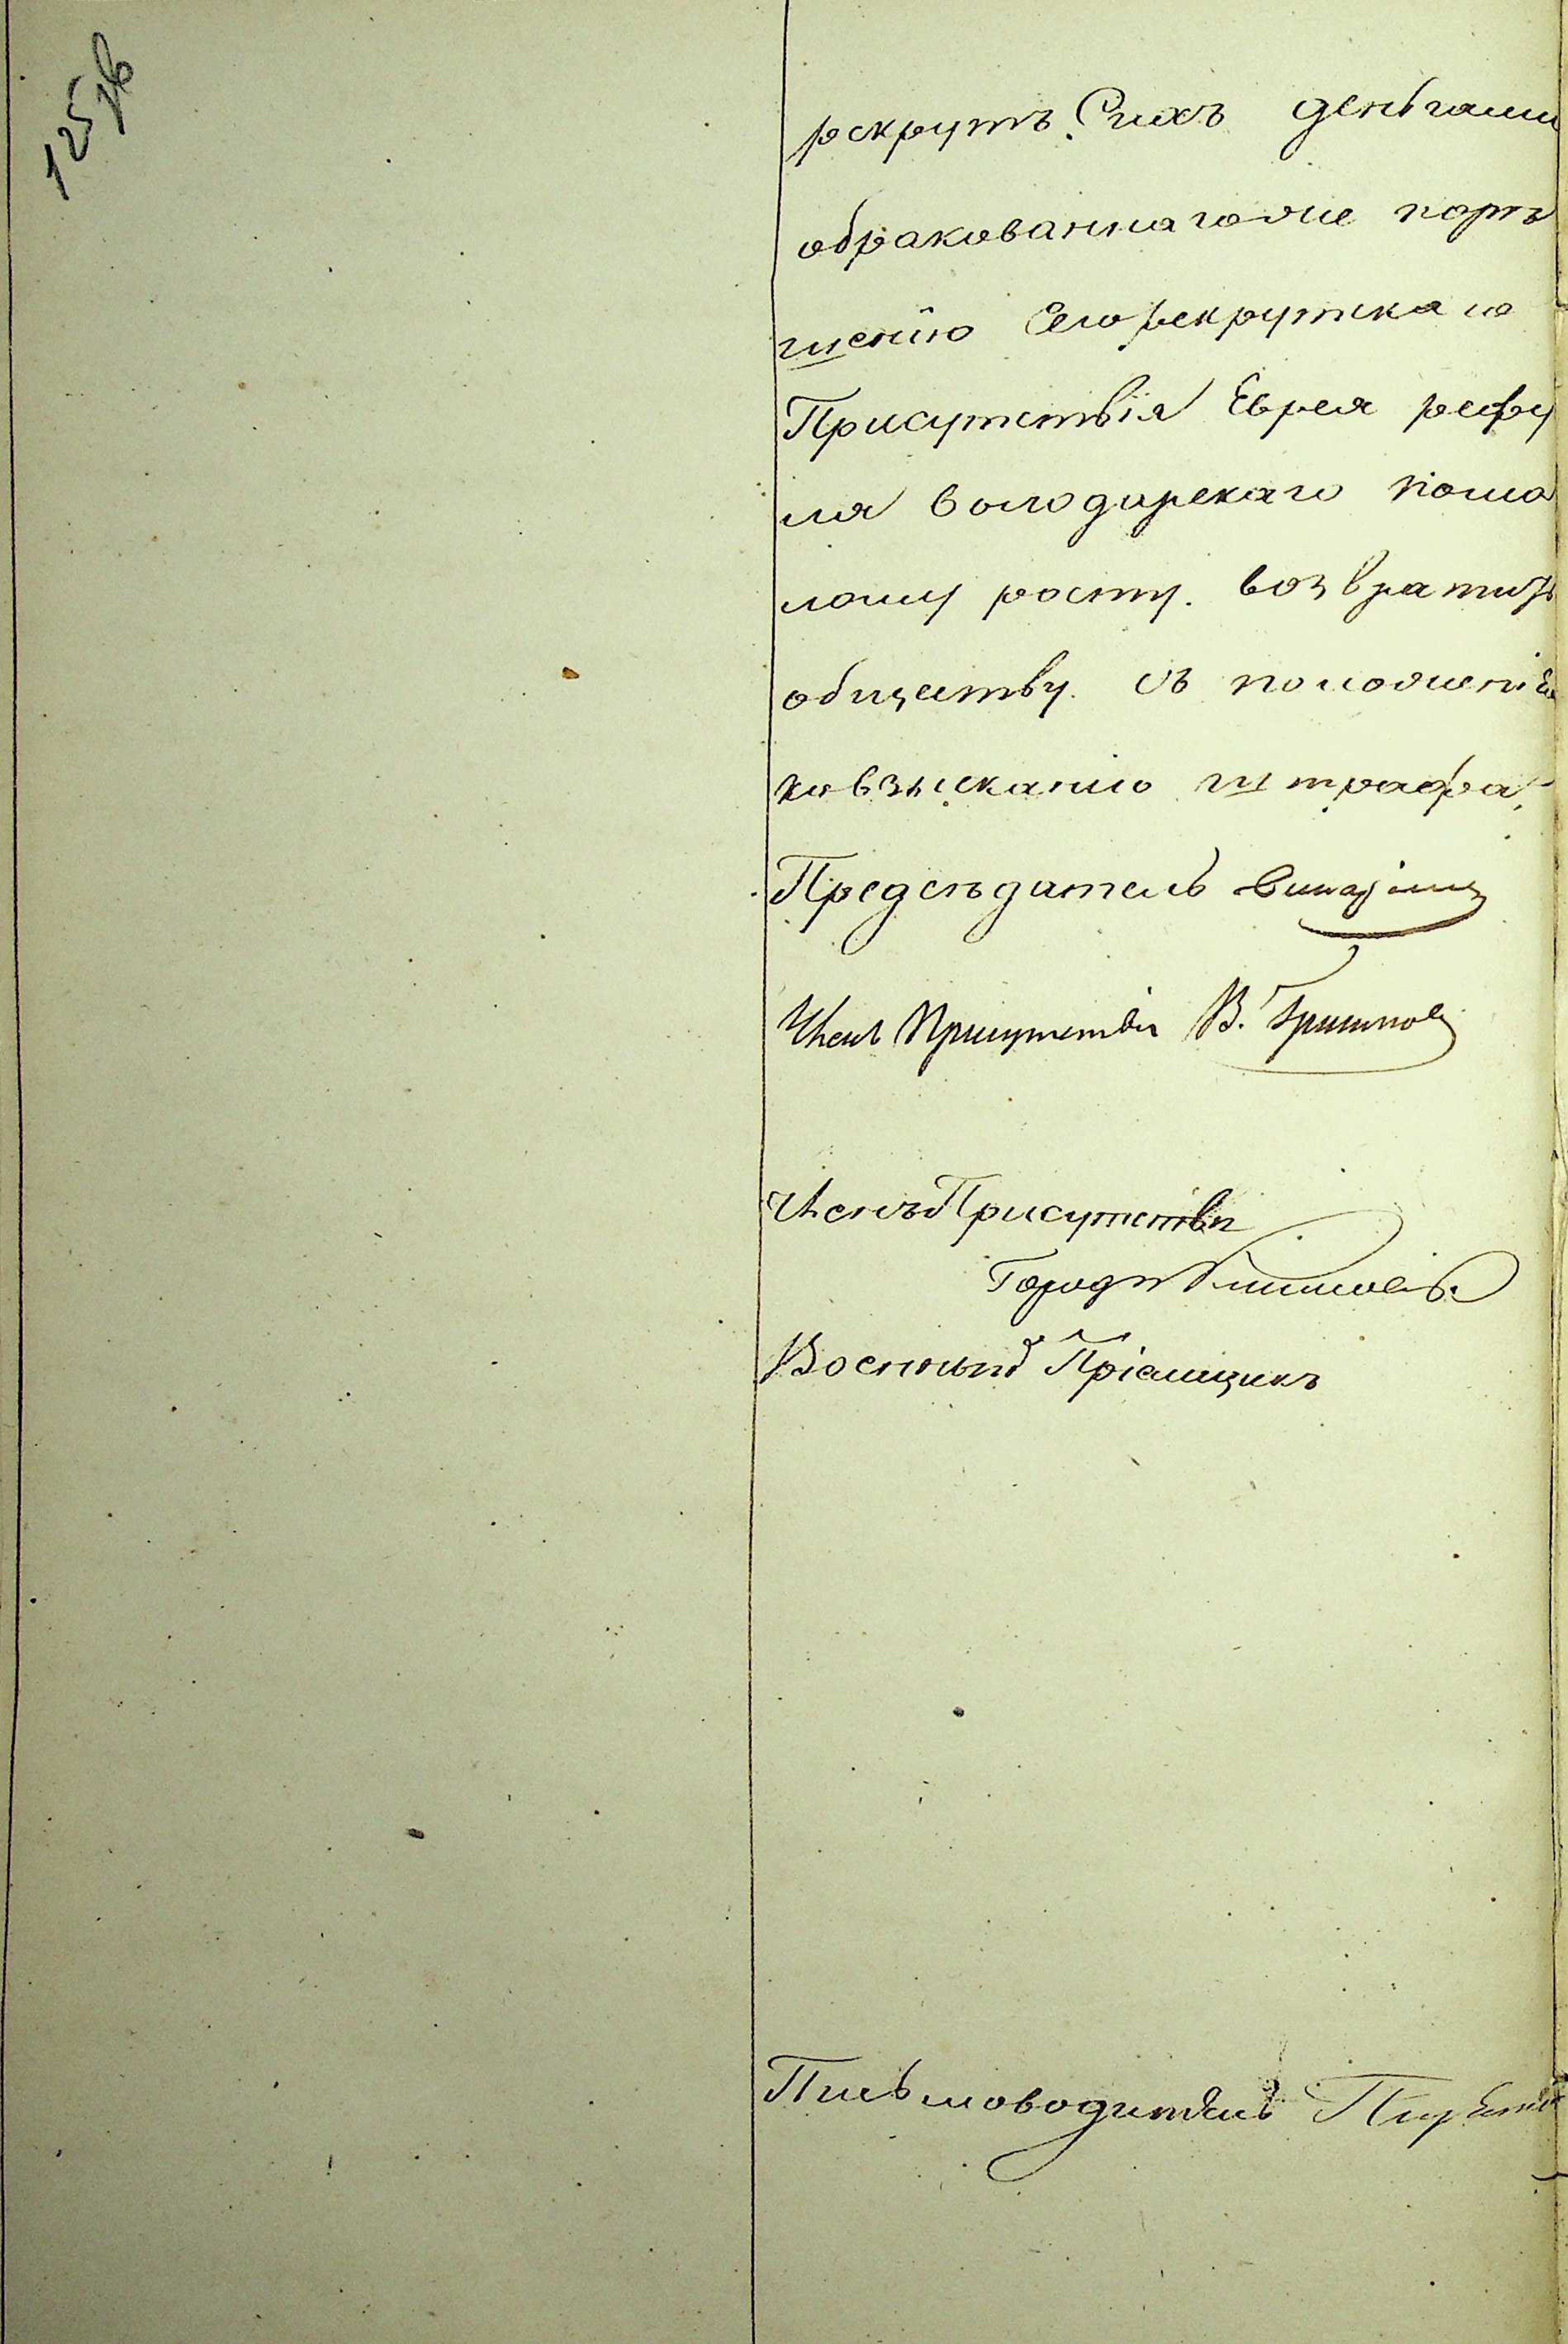 125 об
рекрутъ. Сихъ деньгами
обракованнагоже поръ
шенію Сего рекрутскаго
Присутствія Еврея рефу
ля володарскаго помо
лому росту. возвратить
обществу. съ положенія
ковзысканію штрафа.
Председатель
Членъ Присутствія В.
Членъ Присутствія
Город
Военный Пріемщикъ
Письмоводитель